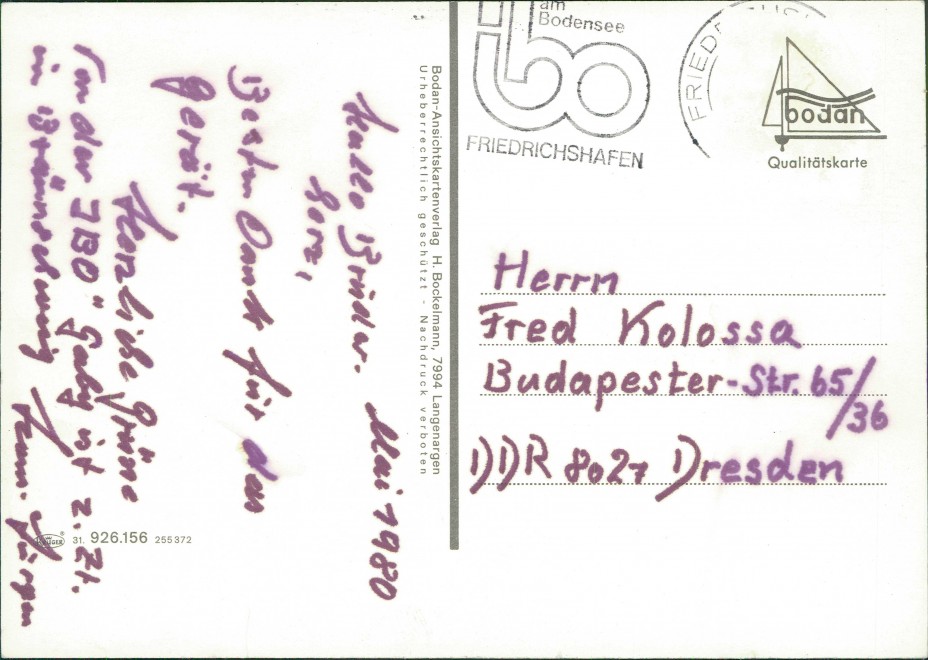 Hallo Bruder- Mai 1980
herz,
Besten Dank für den
Gerät.
Herzliche Grüsse
von der IBO" Gaby ist z. Zt.
in Braunschweig Hans-Jürgen
Bodan-Ansichtskartenverlag H. Bockelmann, 7994 Langenargen
Urheberrechtlich geschützt - Nachdruck verboten
KRÜGER 31. 926.156 255372
am
Bodensee
ibo
FRIEDRICHSHAFEN
bodan
Qualitätskarte
Herrn
Fred Kolossa
Budapester-Str. 65/
36
DDR 8027 Dresden